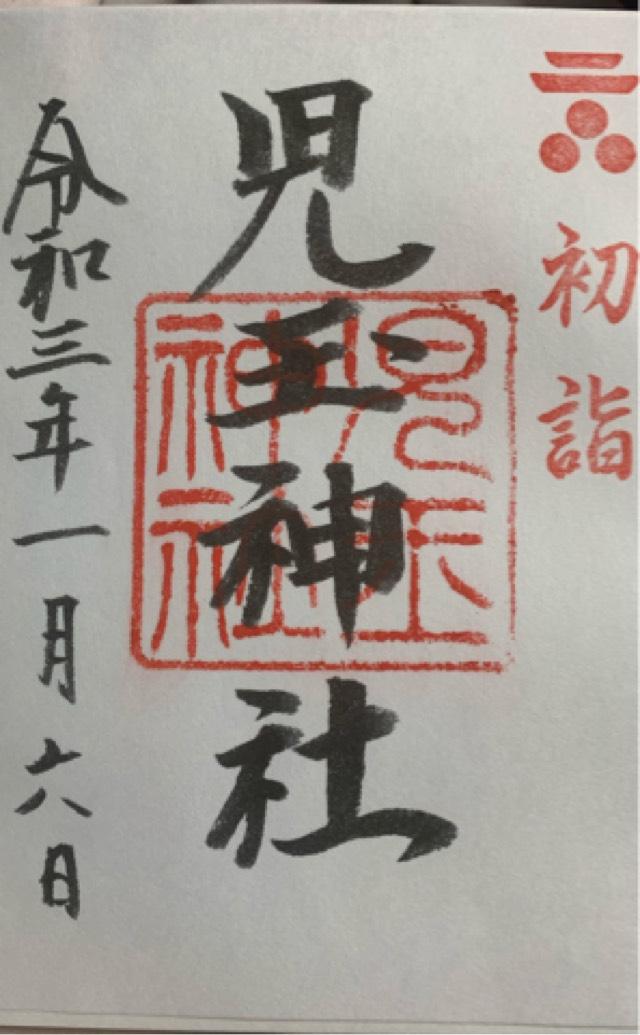 初詣
児玉神社
児玉神社
令和三年一月六日